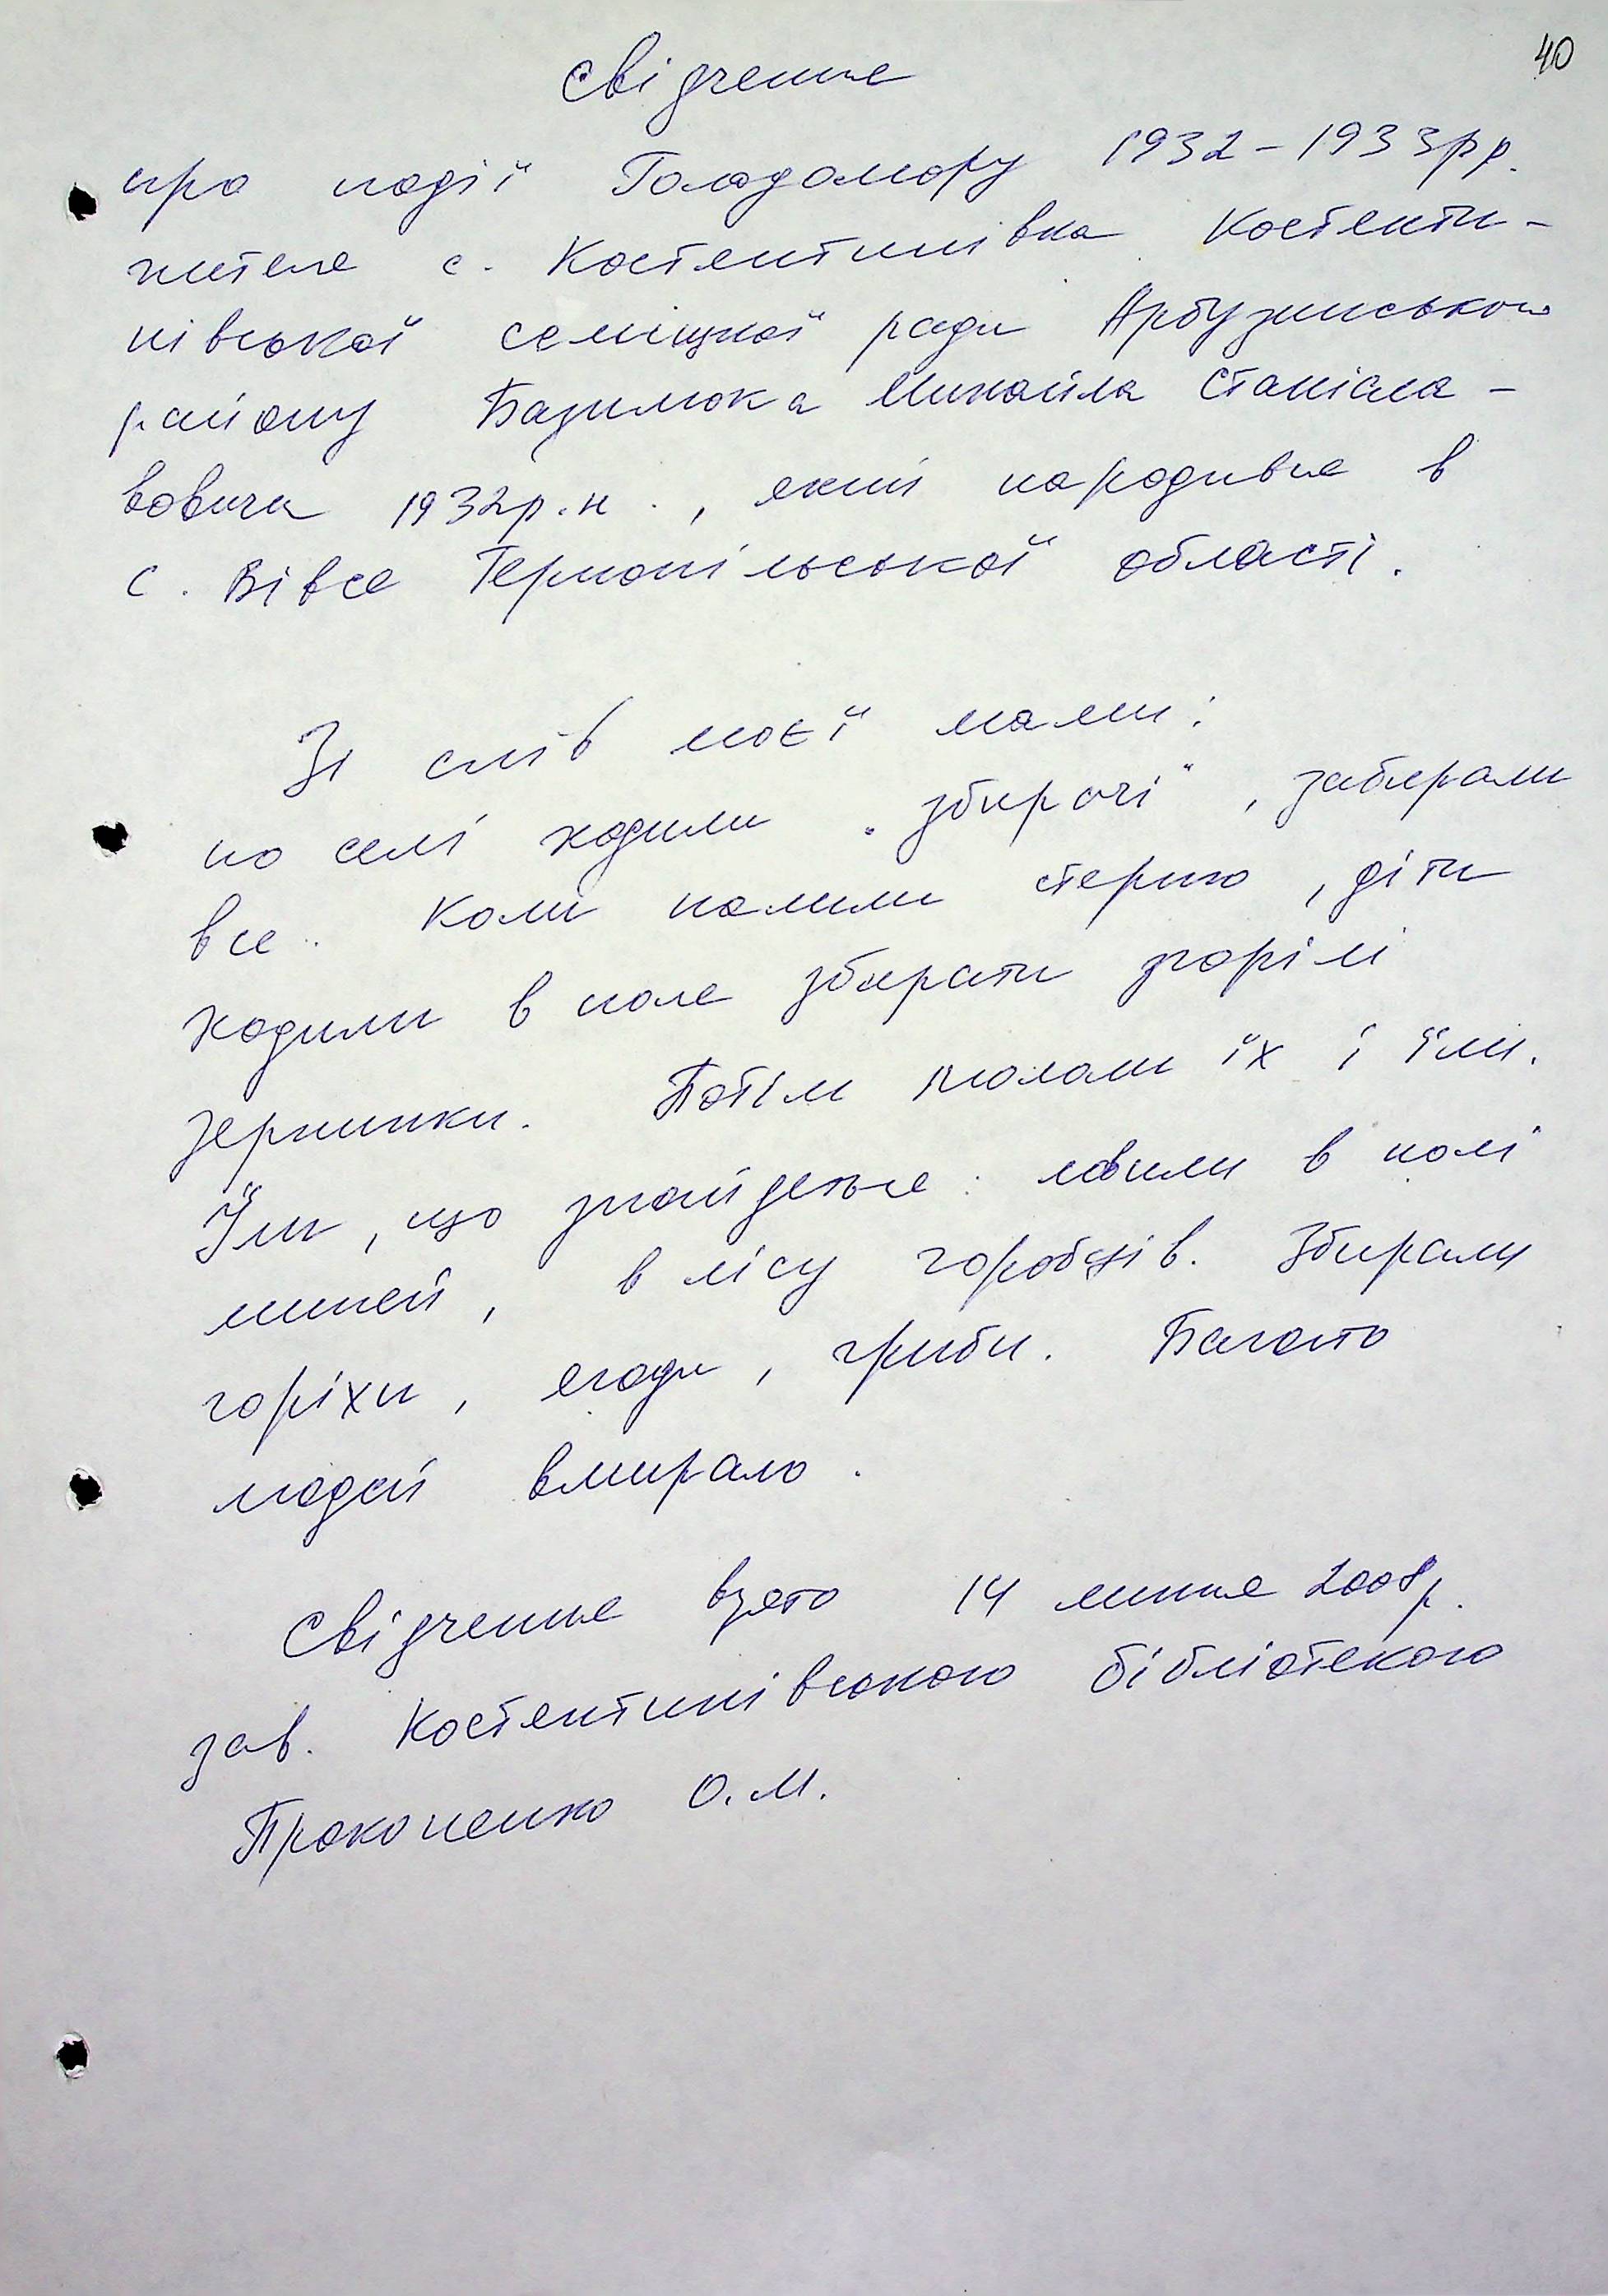 40
Свідчення
про події Голодомору 1932-1933рр.
жителя с. Костянтинівка Костянти-
нівської селищної ради Арбузинського
району Базилюка Михайла Станісла-
вовича 1932р.н., який народився в
с. Вівсе Тернопільської області.
Зі слів моєї мами:
по селі ходили "збирачі", забирали
все. Коли палили стерню, діти
ходили в поле збирати згорілі
зернинки. Потім товкли їх і їли.
Їли, що знайдеться: ловили в полі
мишей, в лісу горобців. Збирали
горіхи, ягоди, гриби. Багато
людей вмирало.
Свідчення взято 14 липня 2008р.
зав. Костянтинівською бібліотекою
Прокопенко О.М.